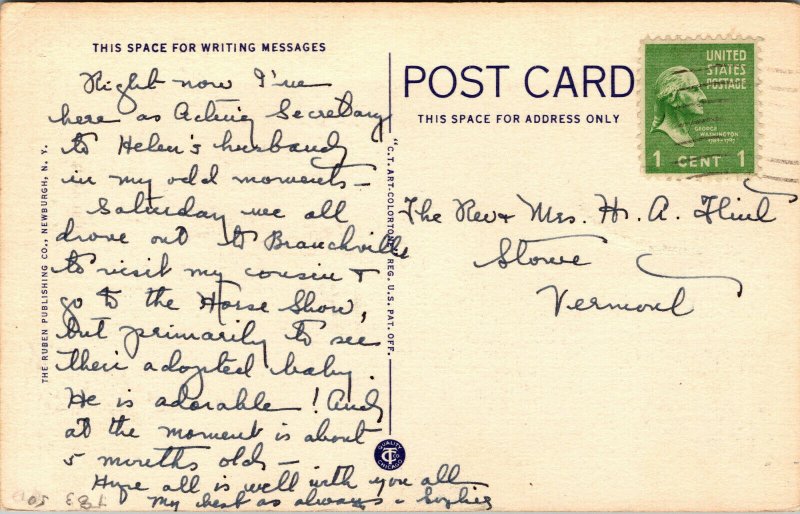 THIS SPACE FOR WRITING MESSAGES
Right now I'm
here as Acting Secretary
to Helen's husband
in my odd moments –
Saturday we all
drove out to Branchville
to visit my cousin &
go to the Horse Show,
but primarily to see
their adopted baby.
He is adorable! And
at the moment is about
5 months old –
Hope all is well with you all
My best as always – Sophie
THE RUBEN PUBLISHING CO., NEWBURGH, N. Y.
"C.T. ART-COLORTONE" REG. U.S. PAT. OFF.
QUALITY
CT CO
CHICAGO
POST CARD
THIS SPACE FOR ADDRESS ONLY
UNITED
STATES
POSTAGE
GEORGE
WASHINGTON
1789-1797
1 CENT 1
The Rev & Mrs. H. A. Flint
Stowe
Vermont